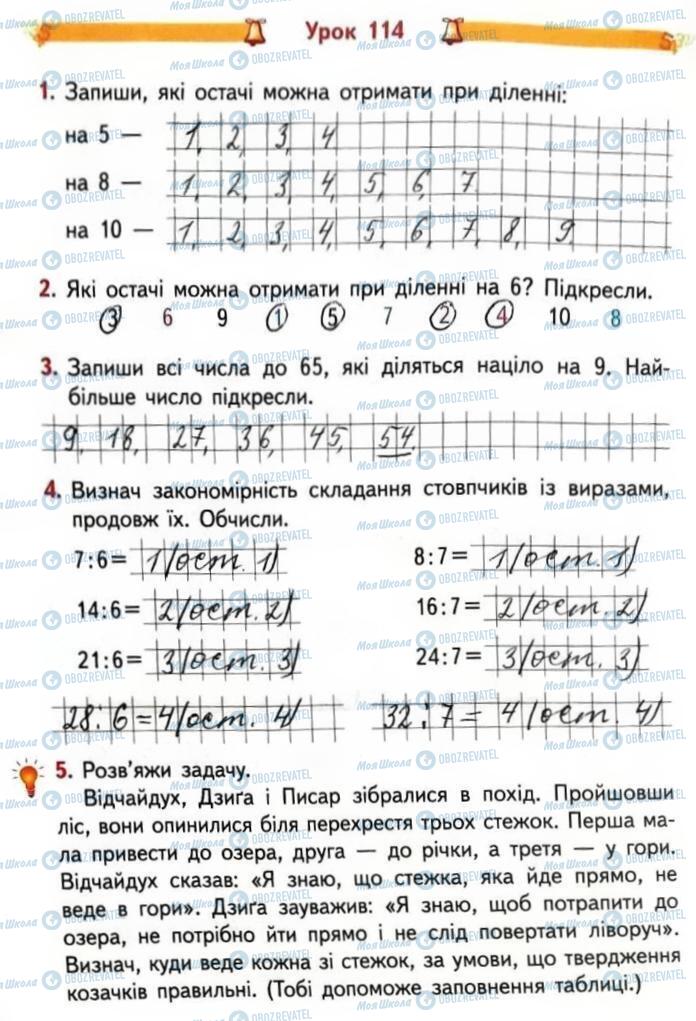 Урок 114
1. Запиши, які остачі можна отримати при діленні:
на 5 — 1, 2, 3, 4
на 8 — 1, 2, 3, 4, 5, 6, 7
на 10 — 1, 2, 3, 4, 5, 6, 7, 8, 9
2. Які остачі можна отримати при діленні на 6? Підкресли.
3 6 9 1 5 7 2 4 10 8
3. Запиши всі числа до 65, які діляться націло на 9. Най-
більше число підкресли.
9, 18, 27, 36, 45, 54
4. Визнач закономірність складання стовпчиків із виразами,
продовж їх. Обчисли.
7:6= 1(ост. 1) 8:7= 1(ост. 1)
14:6= 2(ост. 2) 16:7= 2(ост. 2)
21:6= 3(ост. 3) 24:7= 3(ост. 3)
28:6=4(ост. 4) 32:7= 4(ост. 4)
5. Розв'яжи задачу.
Відчайдух, Дзиґа і Писар зібралися в похід. Пройшовши
ліс, вони опинилися біля перехрестя трьох стежок. Перша ма-
ла привести до озера, друга — до річки, а третя — у гори.
Відчайдух сказав: «Я знаю, що стежка, яка йде прямо, не
веде в гори». Дзиґа зауважив: «Я знаю, щоб потрапити до
озера, не потрібно йти прямо і не слід повертати ліворуч».
Визнач, куди веде кожна зі стежок, за умови, що твердження
козачків правильні. (Тобі допоможе заповнення таблиці.)
МояШкола OBOZREVATEL